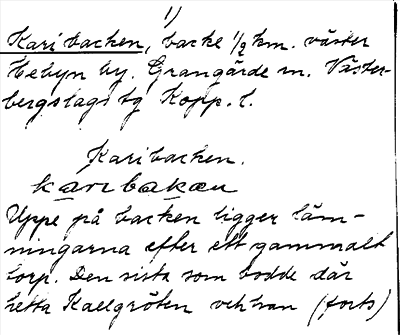 1)
Karibacken, backe 1/2 km. väster
Hebyn by. Grangärde sn. Väster-
bergslags tg Kopp. l.
Karibacken.
karibakæn
Uppe på backen ligger läm-
ningarna efter ett gammalt
torp. Den sista som bodde där
hette Kallgröten och han (forts)